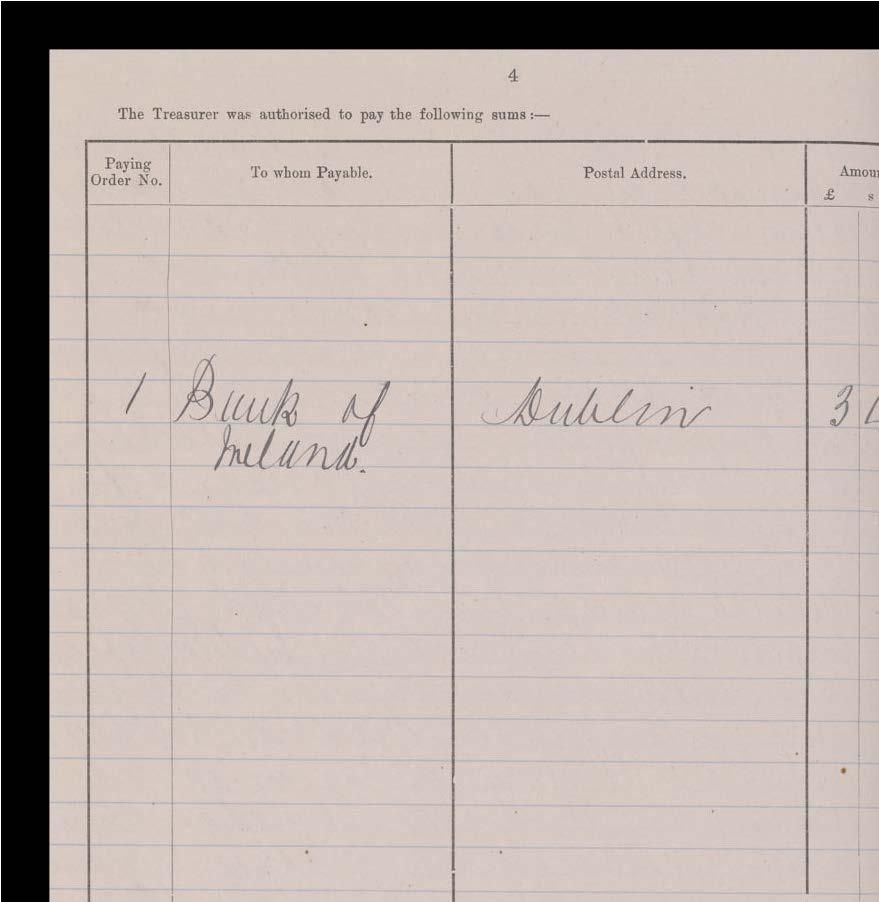 4
The Treasurer was authorised to pay the following sums :—
Paying Order No.
To whom Payable.
Postal Address.
Amoun
£ s
1 Bank of Dublin 3
Ireland.